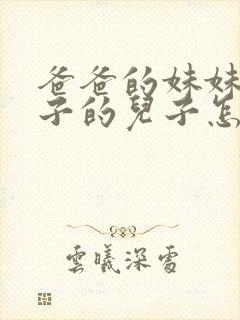 爸爸的妹妹
子的兒子怎
雲曦深處